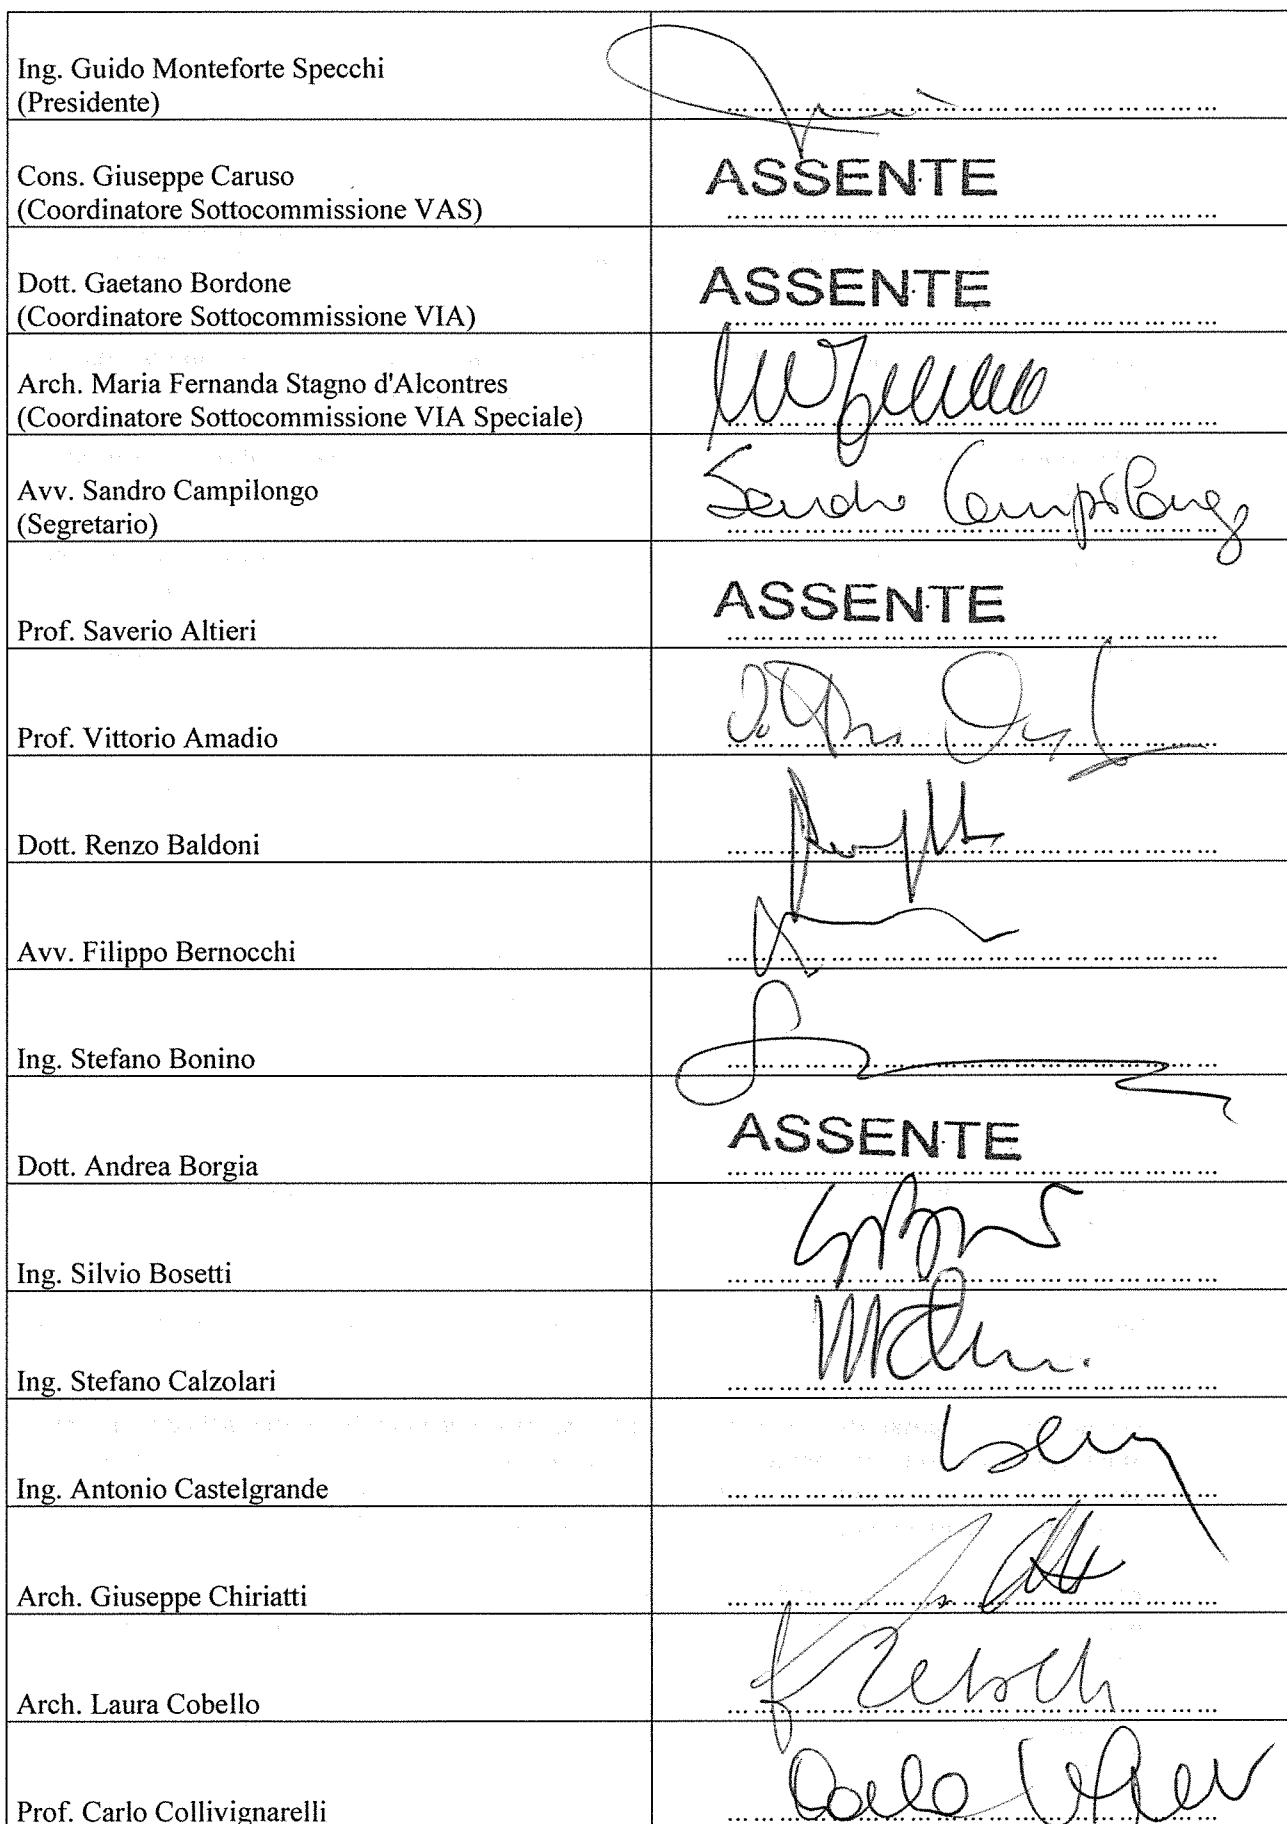 Ing. Guido Monteforte Specchi
(Presidente)
Cons. Giuseppe Caruso
(Coordinatore Sottocommissione VAS)
ASSENTE
Dott. Gaetano Bordone
(Coordinatore Sottocommissione VIA)
ASSENTE
Arch. Maria Fernanda Stagno d'Alcontres
(Coordinatore Sottocommissione VIA Speciale)
Avv. Sandro Campilongo
(Segretario)
Sandro Campilongo
Prof. Saverio Altieri
ASSENTE
Prof. Vittorio Amadio
Dott. Renzo Baldoni
Avv. Filippo Bernocchi
Ing. Stefano Bonino
Dott. Andrea Borgia
ASSENTE
Ing. Silvio Bosetti
Ing. Stefano Calzolari
Ing. Antonio Castelgrande
Arch. Giuseppe Chiriatti
Arch. Laura Cobello
Prof. Carlo Collivignarelli